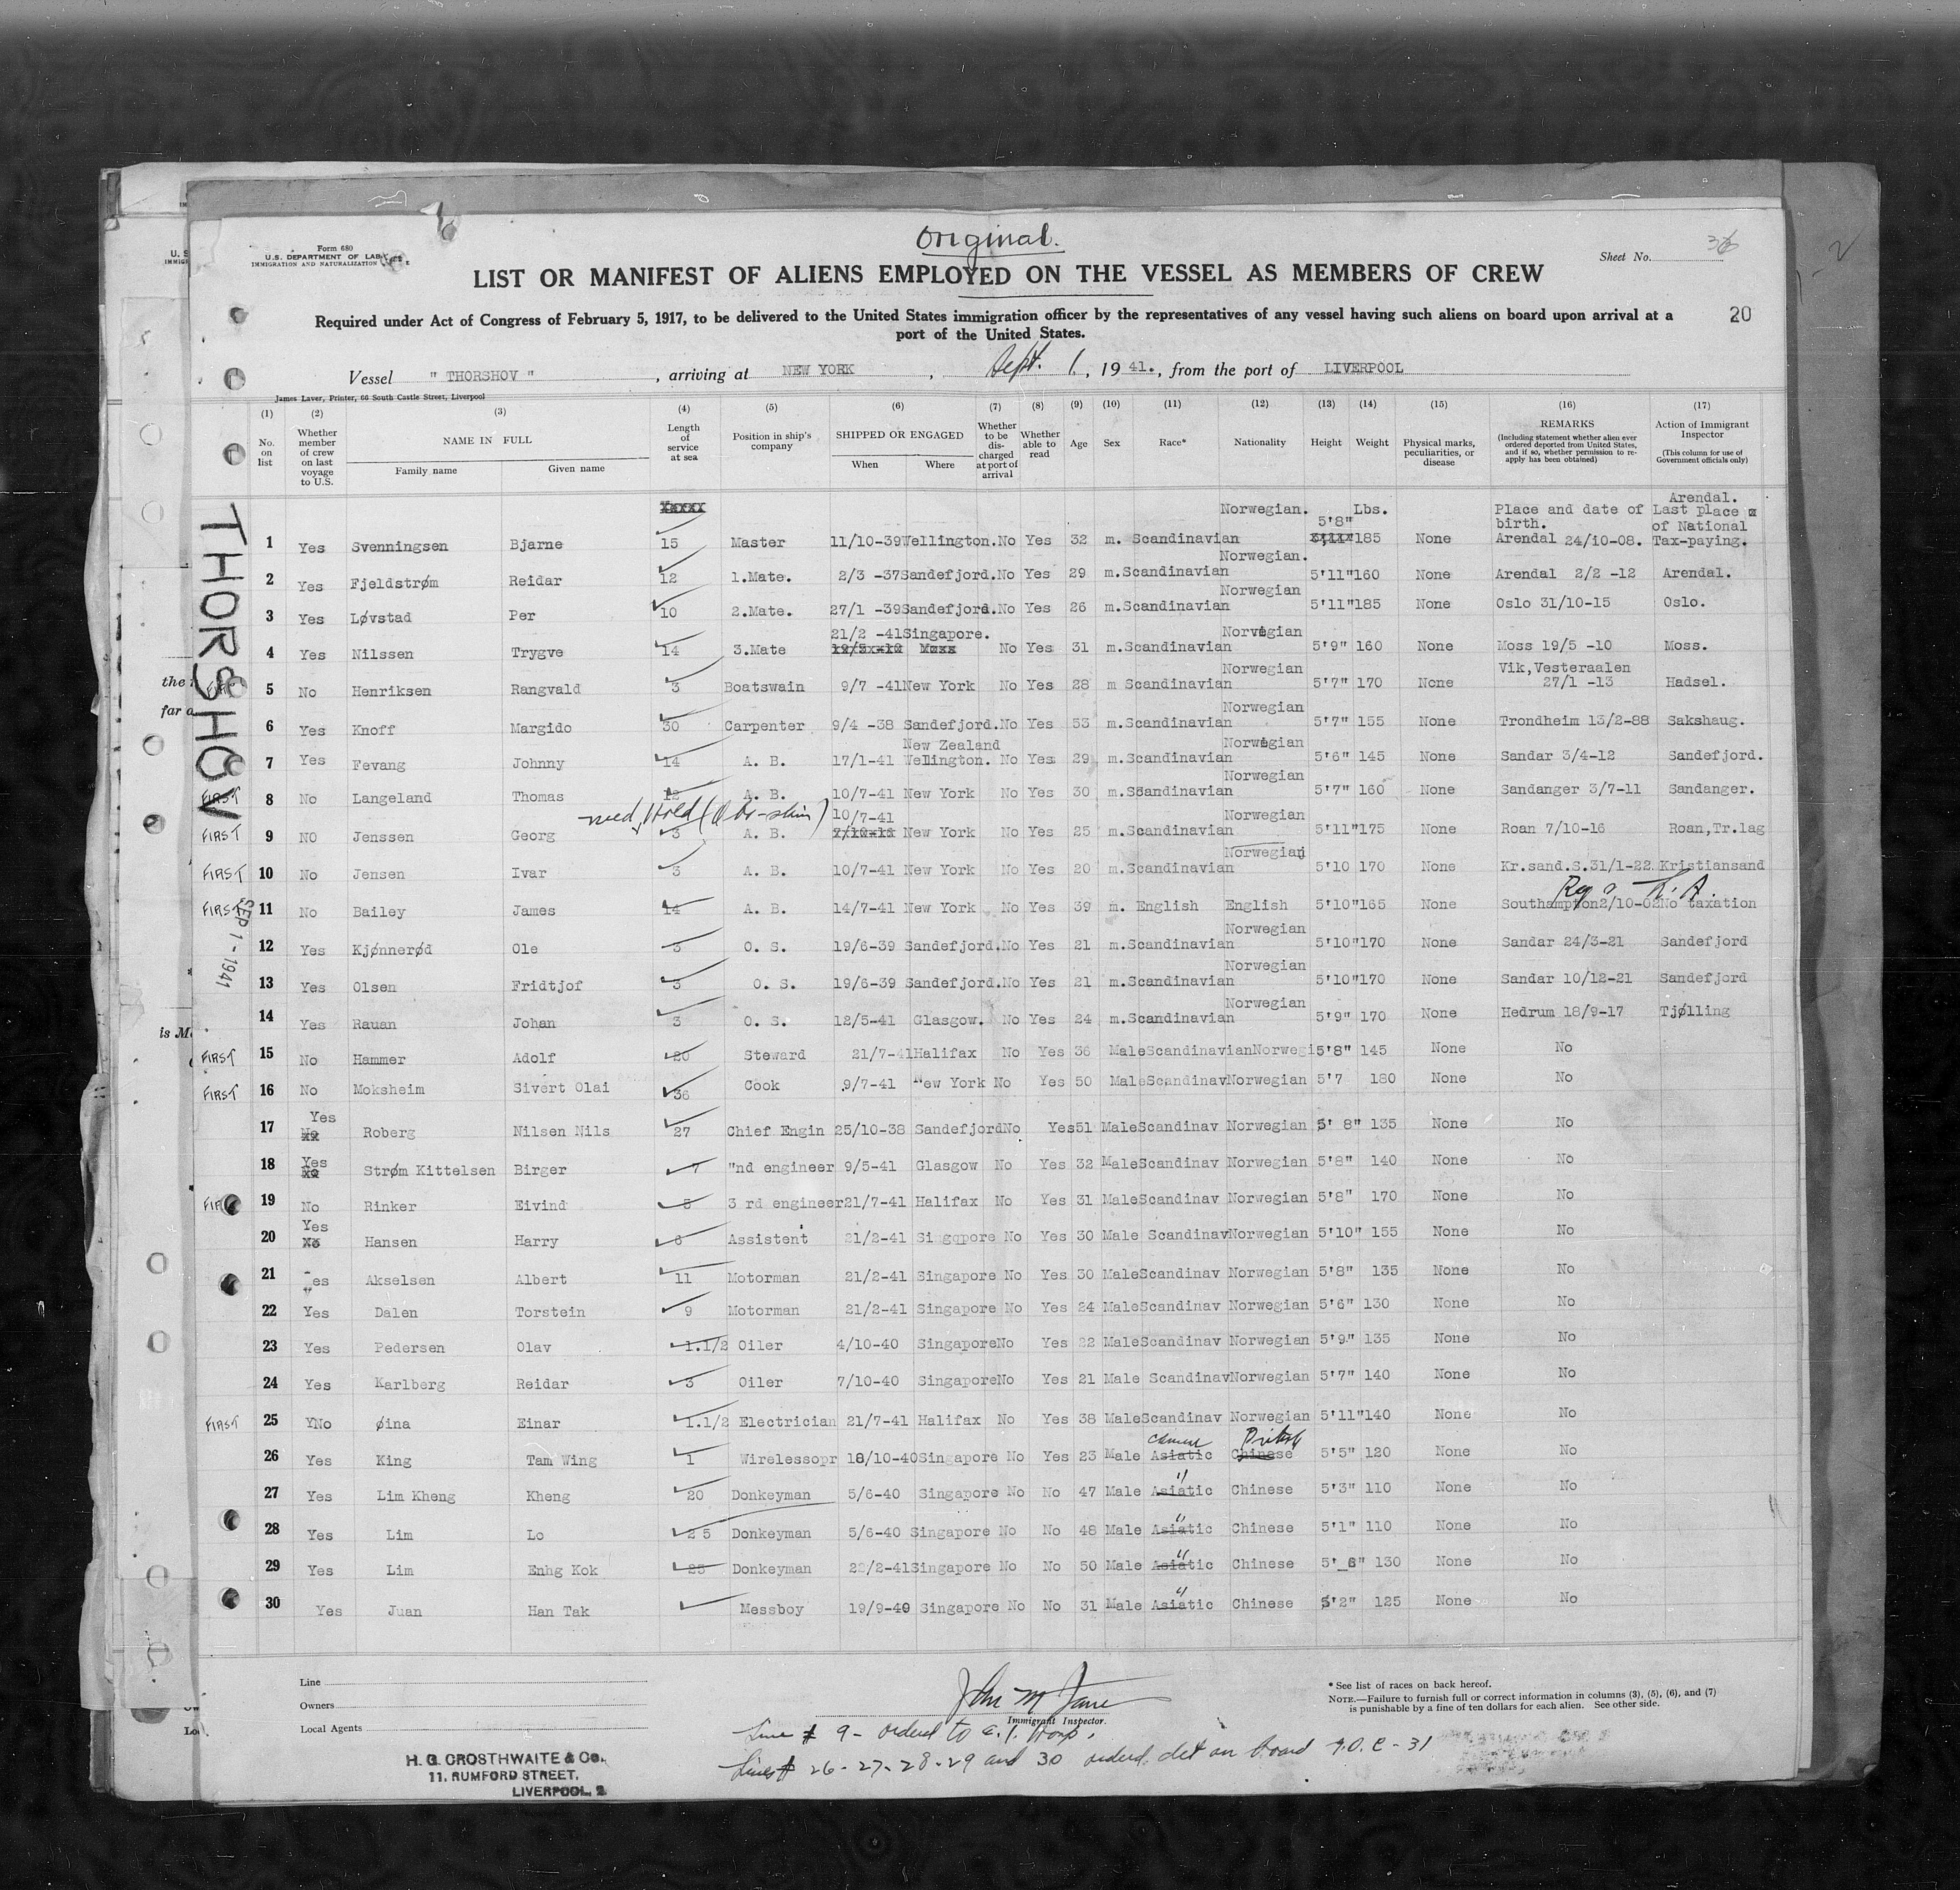 Original.
Form 680
U.S. DEPARTMENT OF LABOR
IMMIGRATION AND NATURALIZATION
Sheet No. 36
LIST OR MANIFEST OF ALIENS EMPLOYED ON THE VESSEL AS MEMBERS OF CREW
20
Required under Act of Congress of February 5, 1917, to be delivered to the United States immigration officer by the representatives of any vessel having such aliens on board upon arrival at a
port of the United States.
Vessel " THORSHOV ", arriving at NEW YORK, Sept. 1, 1941., from the port of LIVERPOOL
James Laver, Printer, 66 South Castle Street, Liverpool
(1) (2) (3) (4) (5) (6) (7) (8) (9) (10) (11) (12) (13) (14) (15) (16) (17)
No. on list
Whether member of crew on last voyage to U.S.
NAME IN FULL
Family name Given name
Length of service at sea
Position in ship's company
SHIPPED OR ENGAGED
When Where
Whether to be discharged at port of arrival
Whether able to read
Age Sex Race* Nationality Height Weight
Physical marks, peculiarities, or disease
REMARKS
(Including statement whether alien ever ordered deported from United States, and if so, whether permission to re-apply has been obtained)
Action of Immigrant Inspector
(This column for use of Government officials only)
THORSHOV
SEP 1 - 1941
Norwegian. Lbs. Place and date of birth. Arendal. Last place of National Tax-paying.
1 Yes Svenningsen Bjarne 15 Master 11/10-39 Wellington. No Yes 32 m. Scandinavian 5'8" 185 None Arendal 24/10-08.
2 Yes Fjeldstrøm Reidar 12 1.Mate. 2/3 -37 Sandefjord. No Yes 29 m. Scandinavian Norwegian. 5'11" 160 None Arendal 2/2 -12 Arendal.
3 Yes Løvstad Per 10 2.Mate. 27/1 -39 Sandefjord. No Yes 26 m. Scandinavian Norwegian 5'11" 185 None Oslo 31/10-15 Oslo.
4 Yes Nilssen Trygve 14 3.Mate 21/2 -41 Singapore. No Yes 31 m. Scandinavian Norwegian 5'9" 160 None Moss 19/5 -10 Moss.
5 No Henriksen Rangvald 3 Boatswain 9/7 -41 New York No Yes 28 m Scandinavian Norwegian 5'7" 170 None Vik,Vesteraalen 27/1 -13 Hadsel.
6 Yes Knoff Margido 30 Carpenter 9/4 -38 Sandefjord. No Yes 53 m. Scandinavian Norwegian 5'7" 155 None Trondheim 13/2-88 Sakshaug.
7 Yes Fevang Johnny 14 A. B. 17/1-41 New Zealand Wellington. No Yes 29 m. Scandinavian Norwegian 5'6" 145 None Sandar 3/4-12 Sandefjord.
FIRST 8 No Langeland Thomas 12 A. B. 10/7-41 New York No Yes 30 m. Scandinavian Norwegian 5'7" 160 None Sandanger 3/7-11 Sandanger.
FIRST 9 NO Jenssen Georg 3 A. B. 10/7-41 New York No Yes 25 m. Scandinavian Norwegian 5'11" 175 None Roan 7/10-16 Roan,Tr.lag
FIRST 10 No Jensen Ivar 3 A. B. 10/7-41 New York No Yes 20 m. Scandinavian Norwegian 5'10 170 None Kr.sand.S.31/1-22. Kristiansand
FIRST 11 No Bailey James 14 A. B. 14/7-41 New York No Yes 39 m. English English 5'10" 165 None Southampton 2/10-02 No taxation
12 Yes Kjønnerød Ole 3 O. S. 19/6-39 Sandefjord. No Yes 21 m. Scandinavian Norwegian 5'10" 170 None Sandar 24/3-21 Sandefjord
13 Yes Olsen Fridtjof 3 O. S. 19/6-39 Sandefjord. No Yes 21 m. Scandinavian Norwegian 5'10" 170 None Sandar 10/12-21 Sandefjord
14 Yes Rauan Johan 3 O. S. 12/5-41 Glasgow. No Yes 24 m. Scandinavian Norwegian 5'9" 170 None Hedrum 18/9-17 Tjølling
FIRST 15 No Hammer Adolf 20 Steward 21/7-41 Halifax No Yes 36 Male Scandinavian Norwegi 5'8" 145 None No
FIRST 16 No Moksheim Sivert Olai 36 Cook 9/7-41 New York No Yes 50 Male Scandinav Norwegian 5'7 180 None No
17 Yes Roberg Nilsen Nils 27 Chief Engin 25/10-38 Sandefjord No Yes 51 Male Scandinav Norwegian 5' 8" 135 None No
18 Yes Strøm Kittelsen Birger 7 "nd engineer 9/5-41 Glasgow No Yes 32 Male Scandinav Norwegian 5'8" 140 None No
FIRST 19 No Rinker Eivind 5 3 rd engineer 21/7-41 Halifax No Yes 31 Male Scandinav Norwegian 5'8" 170 None No
20 Yes Hansen Harry 6 Assistent 21/2-41 Singapore No Yes 30 Male Scandinav Norwegian 5'10" 155 None No
21 Yes Akselsen Albert 11 Motorman 21/2-41 Singapore No Yes 30 Male Scandinav Norwegian 5'8" 135 None No
22 Yes Dalen Torstein 9 Motorman 21/2-41 Singapore No Yes 24 Male Scandinav Norwegian 5'6" 130 None No
23 Yes Pedersen Olav 1.1/2 Oiler 4/10-40 Singapore No Yes 22 Male Scandinav Norwegian 5'9" 135 None No
24 Yes Karlberg Reidar 3 Oiler 7/10-40 Singapore No Yes 21 Male Scandinav Norwegian 5'7" 140 None No
FIRST 25 No Øina Einar 1.1/2 Electrician 21/7-41 Halifax No Yes 38 Male Scandinav Norwegian 5'11" 140 None No
Chinese British
26 Yes King Tam Wing 1 Wirelessopr 18/10-40 Singapore No Yes 23 Male Asiatic Chinese 5'5" 120 None No
27 Yes Lim Kheng Kheng 20 Donkeyman 5/6-40 Singapore No No 47 Male Asiatic " Chinese 5'3" 110 None No
28 Yes Lim Lo 25 Donkeyman 5/6-40 Singapore No No 48 Male Asiatic " Chinese 5'1" 110 None No
29 Yes Lim Enhg Kok 25 Donkeyman 22/2-41 Singapore No No 50 Male Asiatic " Chinese 5'_6" 130 None No
30 Yes Juan Han Tak Messboy 19/9-40 Singapore No No 31 Male Asiatic " Chinese 5'2" 125 None No
Line
Owners
Local Agents
H. G. CROSTHWAITE & Co.,
11, RUMFORD STREET,
LIVERPOOL, 2
Immigrant Inspector.
* See list of races on back hereof.
NOTE.—Failure to furnish full or correct information in columns (3), (5), (6), and (7)
is punishable by a fine of ten dollars for each alien. See other side.
Line # 9 - ordered to E.I. Hosp.
Lines # 26-27-28-29 and 30 ordered det on board